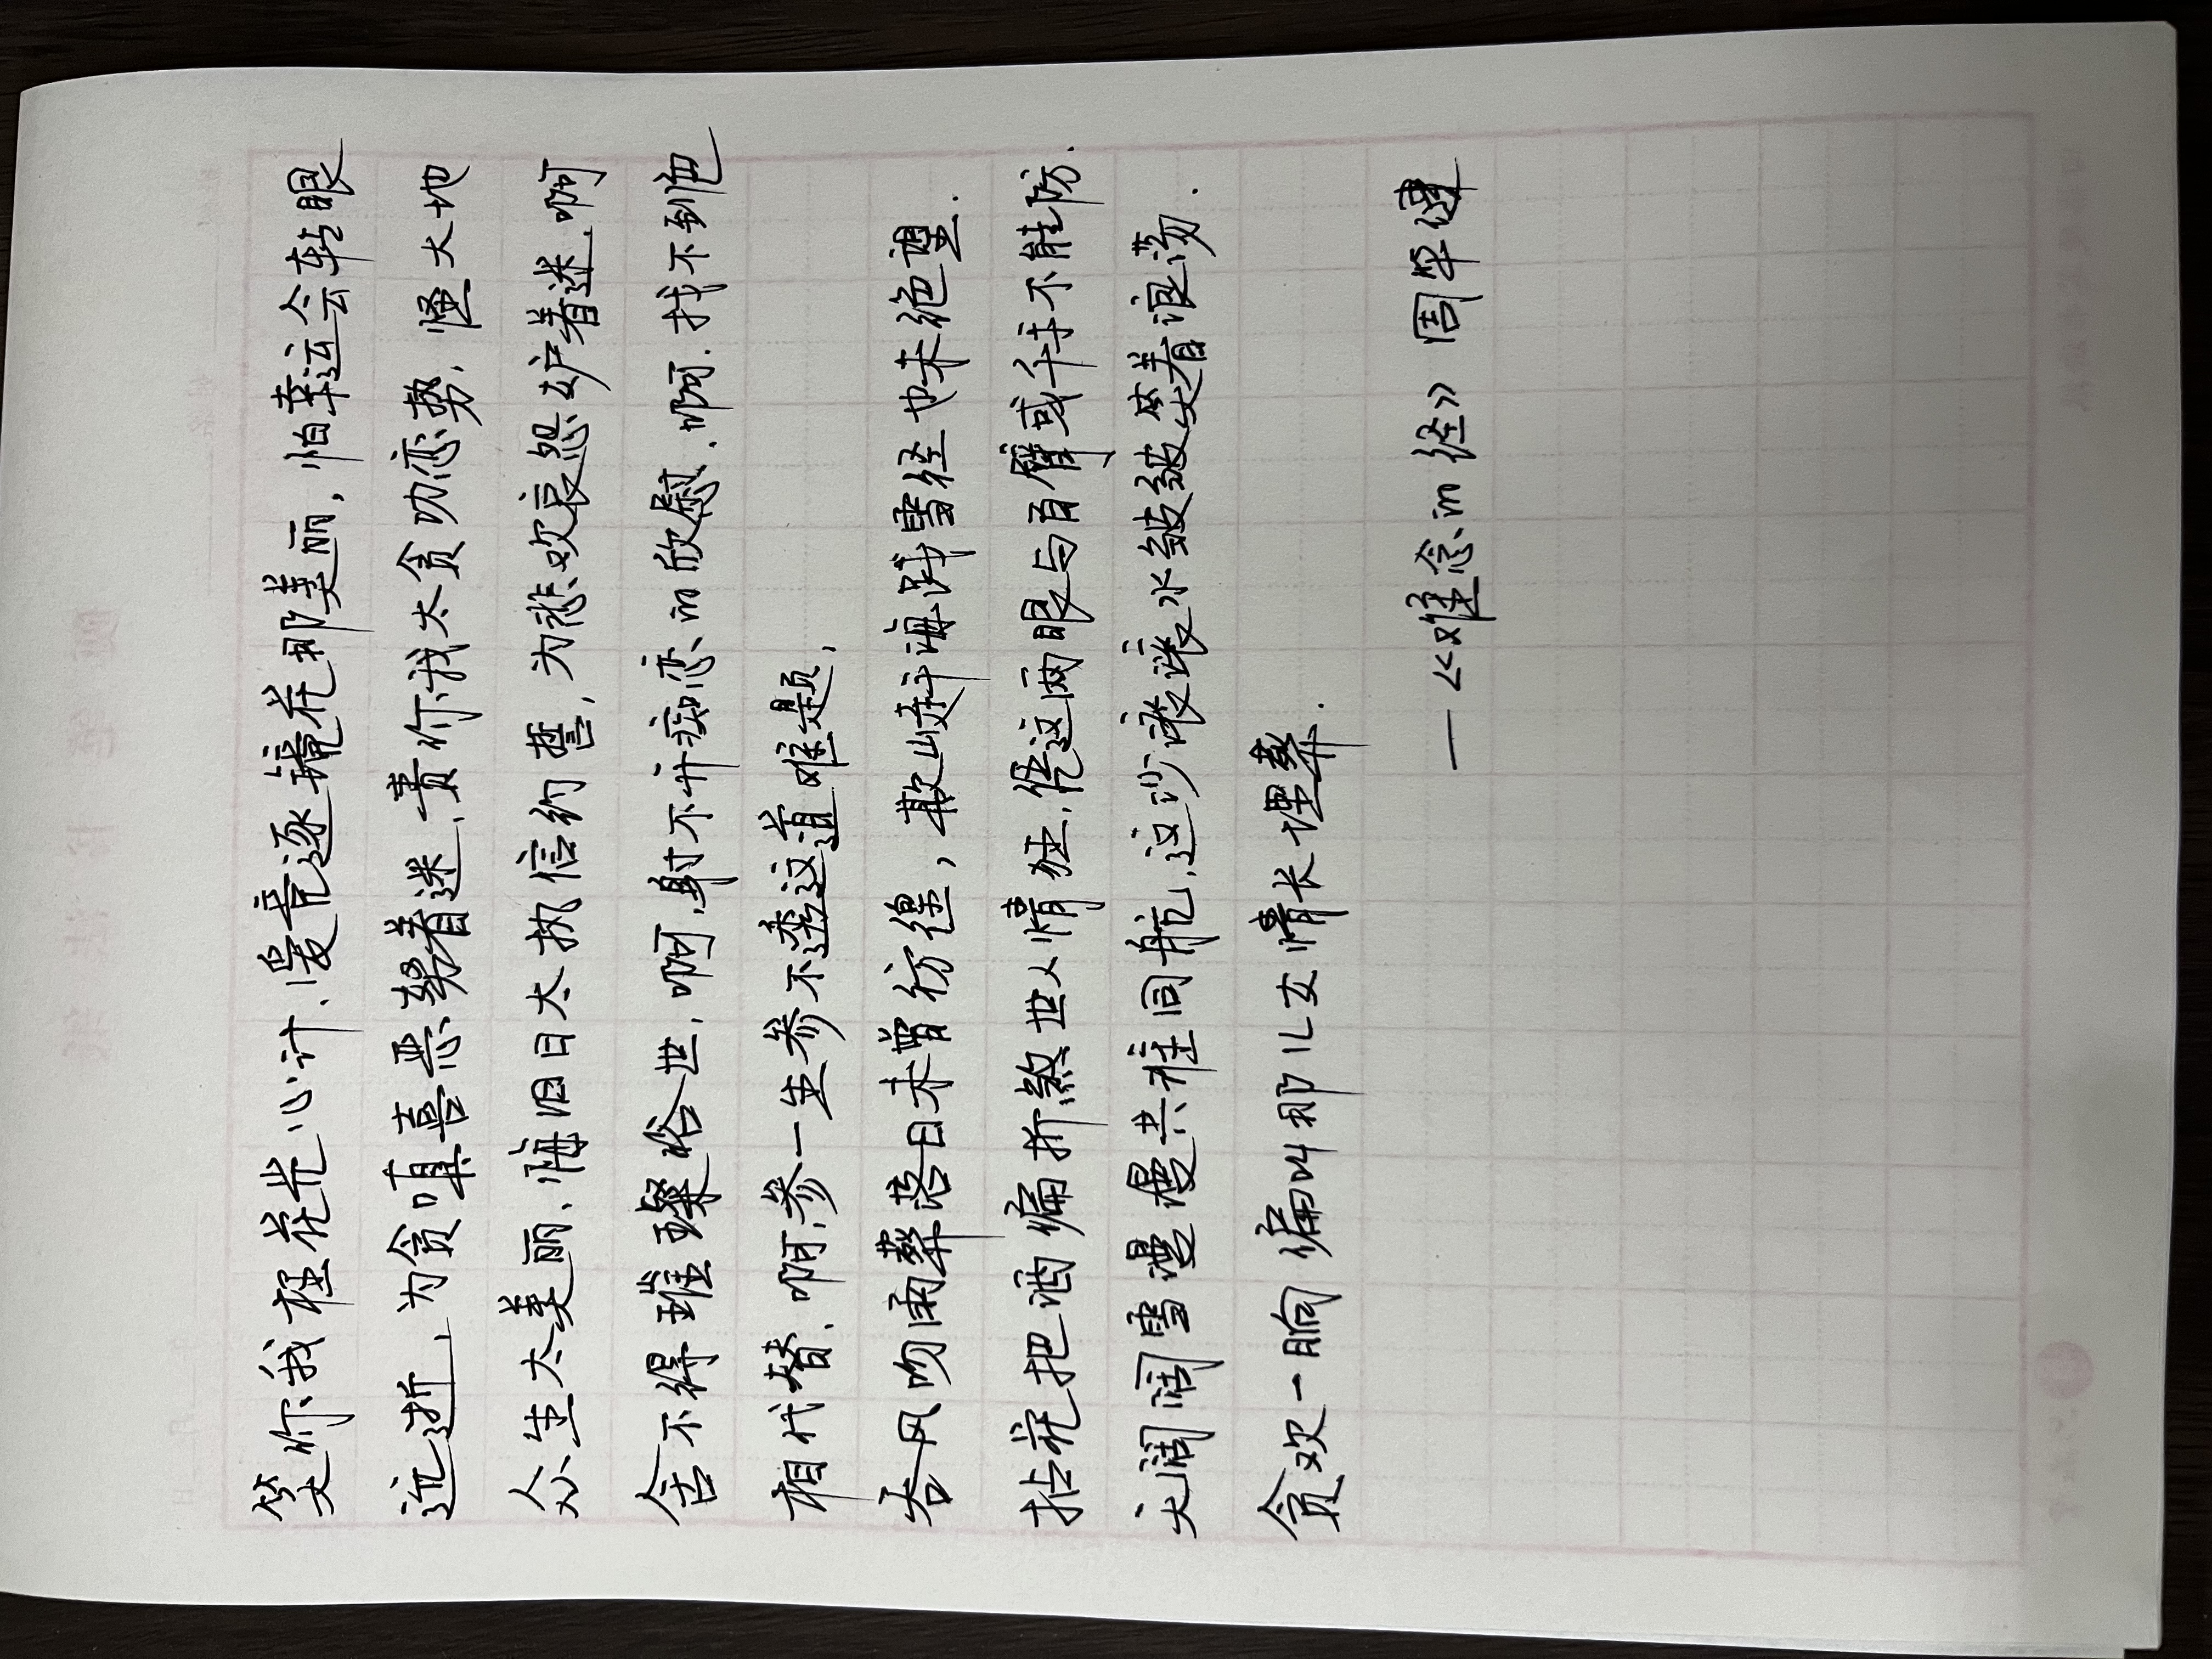 笑你我枉花光心计、爱竞逐镜花那美丽，怕幸运会转眼
远逝，为贪嗔喜恶、怒着迷，责你我太贪功恋势，怪大地
众生太美丽，悔旧日太执信约誓，为悲欢哀怨妒着迷，啊
舍不得璀璨俗世，啊，躲不开痴恋的欣慰，啊，找不到色
相代替，啊，参一生参不透这道难题，
吞风吻雨葬落日未曾彷徨，欺山赶海践雪径也未绝望．
拈花把酒偏折煞世人情狂，凭这两眼与百臂或千手不能防．
天阔阔雪漫漫共谁同航，这沙滚滚水皱皱笑着浪荡．
贪欢一晌偏叫那儿女情长埋葬．
—《难念的经》周华健